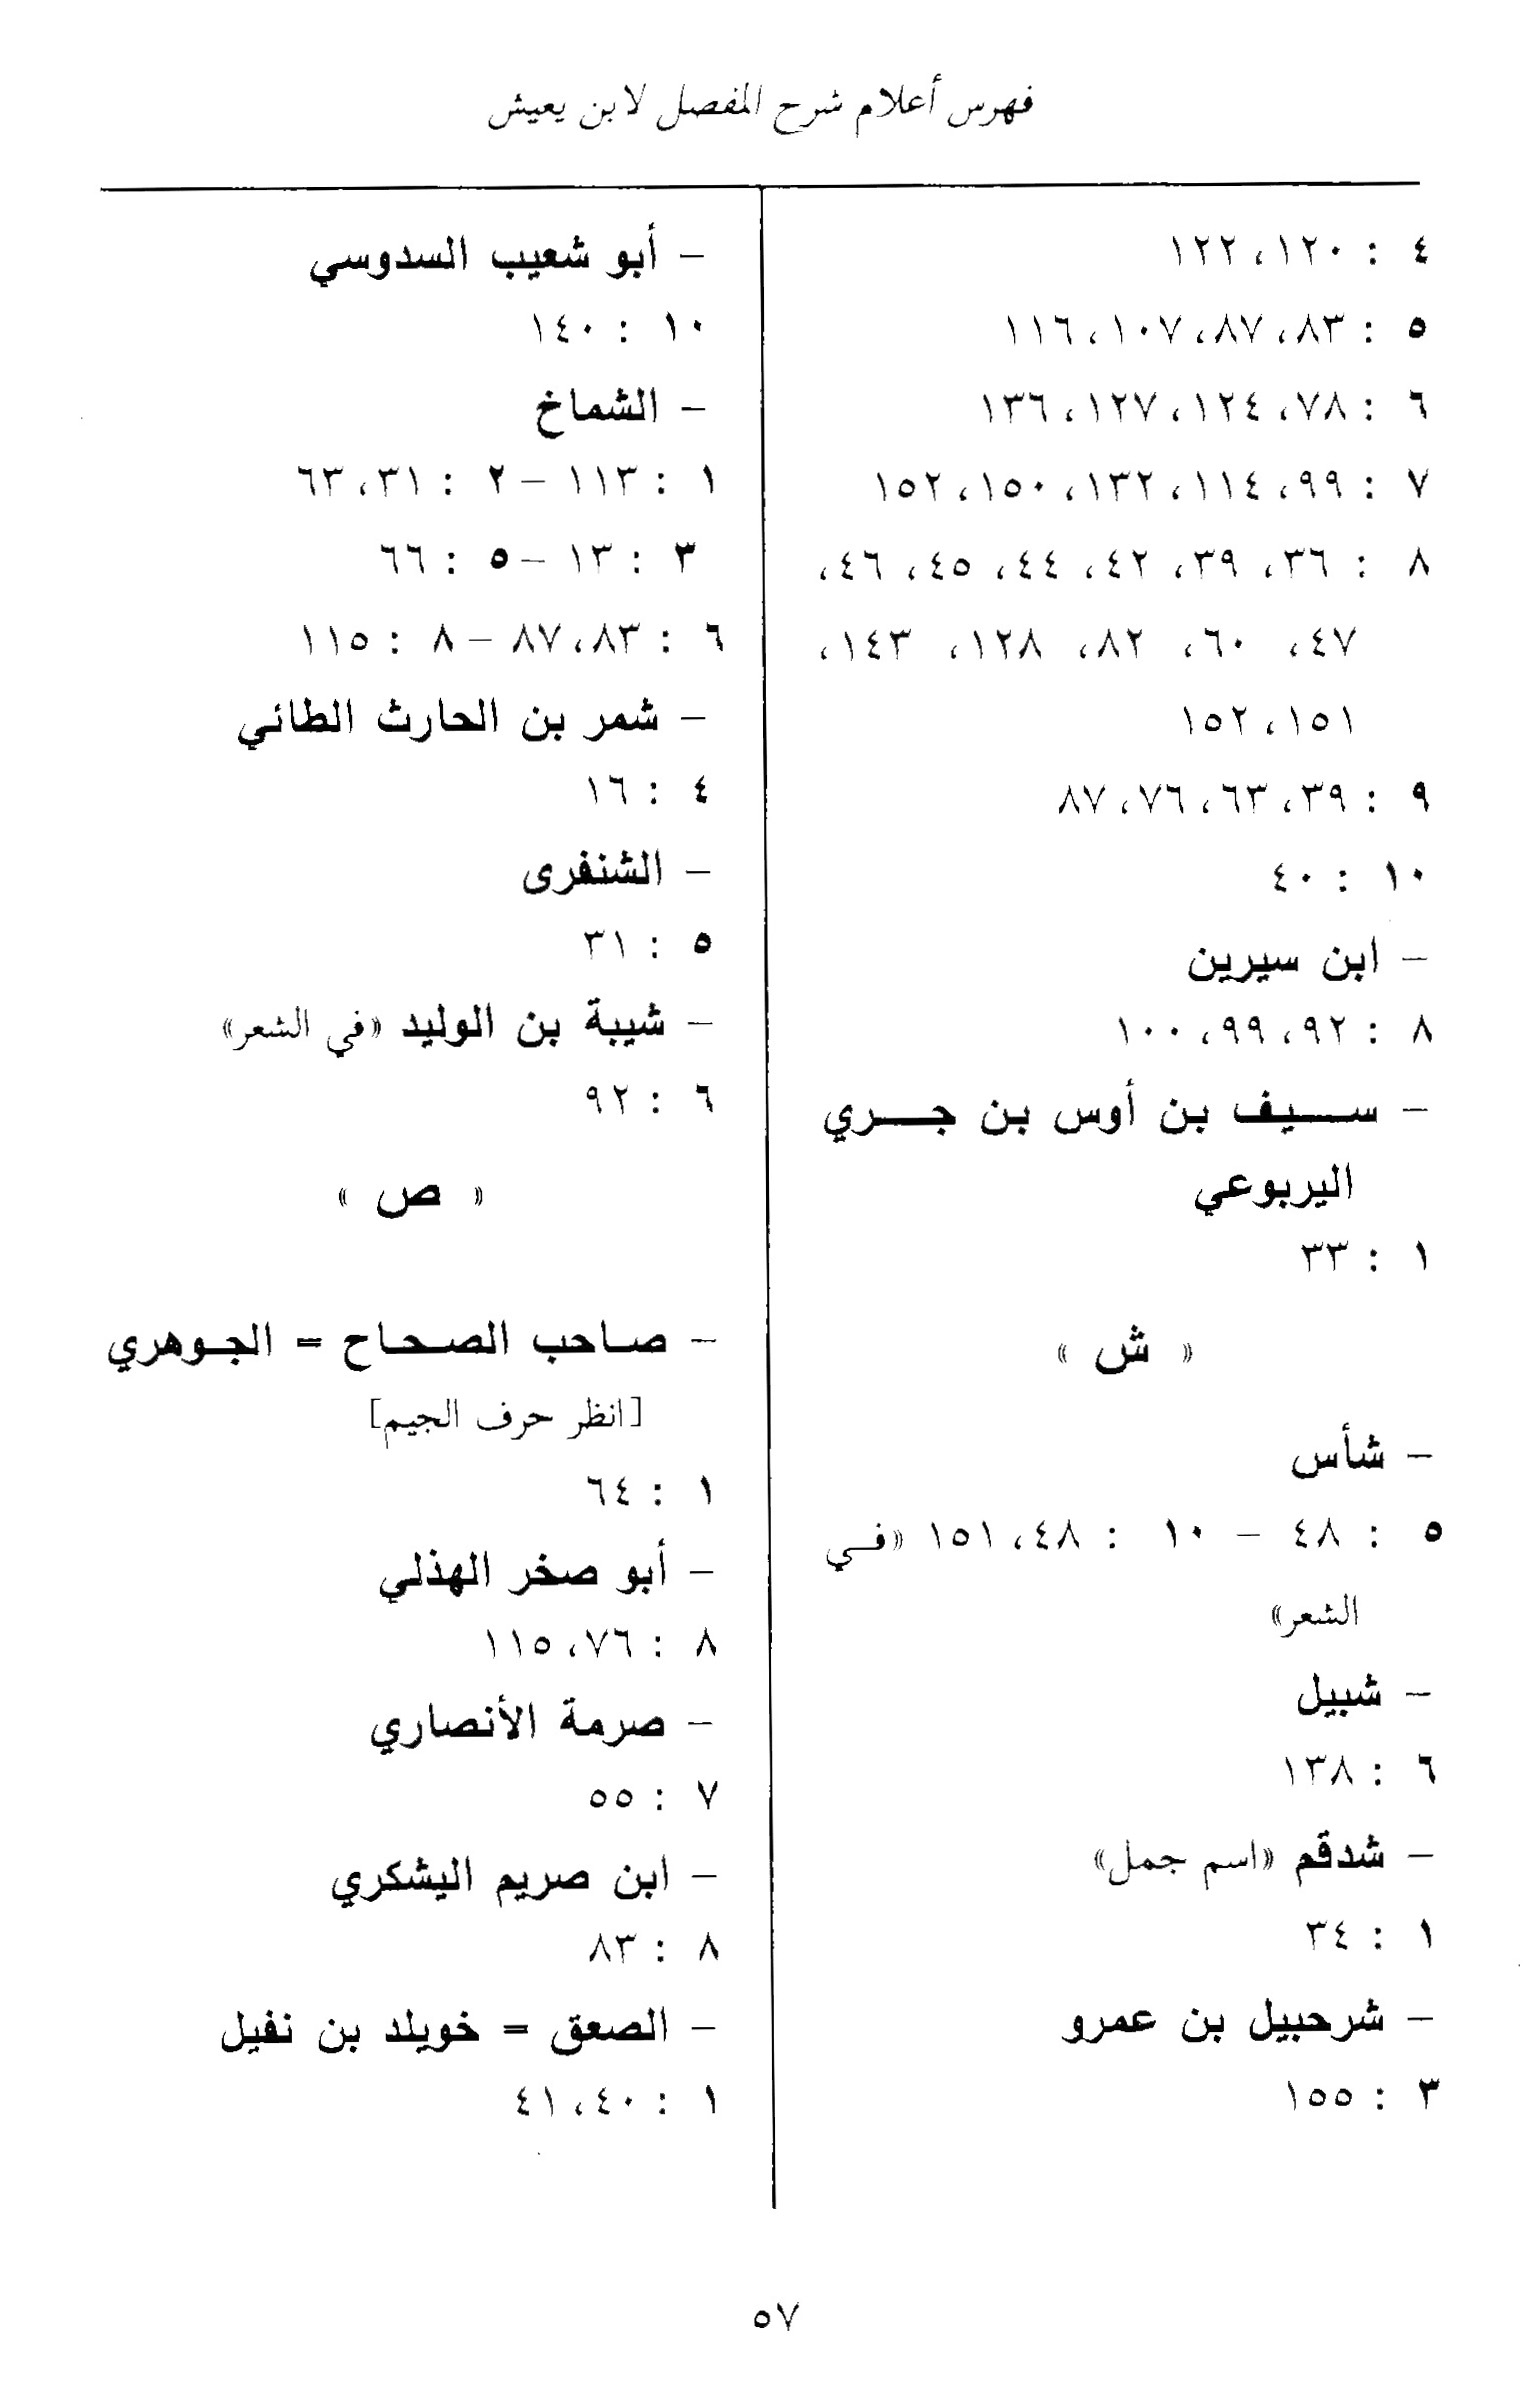 فهرس أعلام شرح المفصل لابن يعيش
٤ : ١٢٠، ١٢٢
٥ : ٨٣، ٨٧، ١٠٧، ١١٦
٦ : ٧٨، ١٢٤، ١٢٧، ١٣٦
٧ : ٩٩، ١١٤، ١٣٢، ١٥٠، ١٥٢
٨ : ٣٦، ٣٩، ٤٢، ٤٤، ٤٥، ٤٦،
٤٧، ٦٠، ٨٢، ١٢٨، ١٤٣،
١٥١، ١٥٢
٩ : ٣٩، ٦٣، ٧٦، ٨٧
١٠ : ٤٠
– ابن سيرين
٨ : ٩٢، ٩٩، ١٠٠
– سـيف بن أوس بن جـري
اليربوعي
١ : ٣٣
« ش »
– شأس
٥ : ٤٨ – ١٠ : ٤٨، ١٥١ «في
الشعر»
– شبيل
٦ : ١٣٨
– شدقم «اسم جمل»
١ : ٣٤
– شرحبيل بن عمرو
٣ : ١٥٥
– أبو شعيب السدوسي
١٠ : ١٤٠
– الشماخ
١ : ١١٣ – ٢ : ٣١، ٦٣
٣ : ١٣ – ٥ : ٦٦
٦ : ٨٣، ٨٧ – ٨ : ١١٥
– شمر بن الحارث الطائي
٤ : ١٦
– الشنفرى
٥ : ٣١
– شيبة بن الوليد «في الشعر»
٦ : ٩٢
« ص »
– صاحب الصحاح = الجوهري
[انظر حرف الجيم]
١ : ٦٤
– أبو صخر الهذلي
٨ : ٧٦، ١١٥
– صرمة الأنصاري
٧ : ٥٥
– ابن صريم اليشكري
٨ : ٨٣
– الصعق = خويلد بن نفيل
١ : ٤٠، ٤١
٥٧